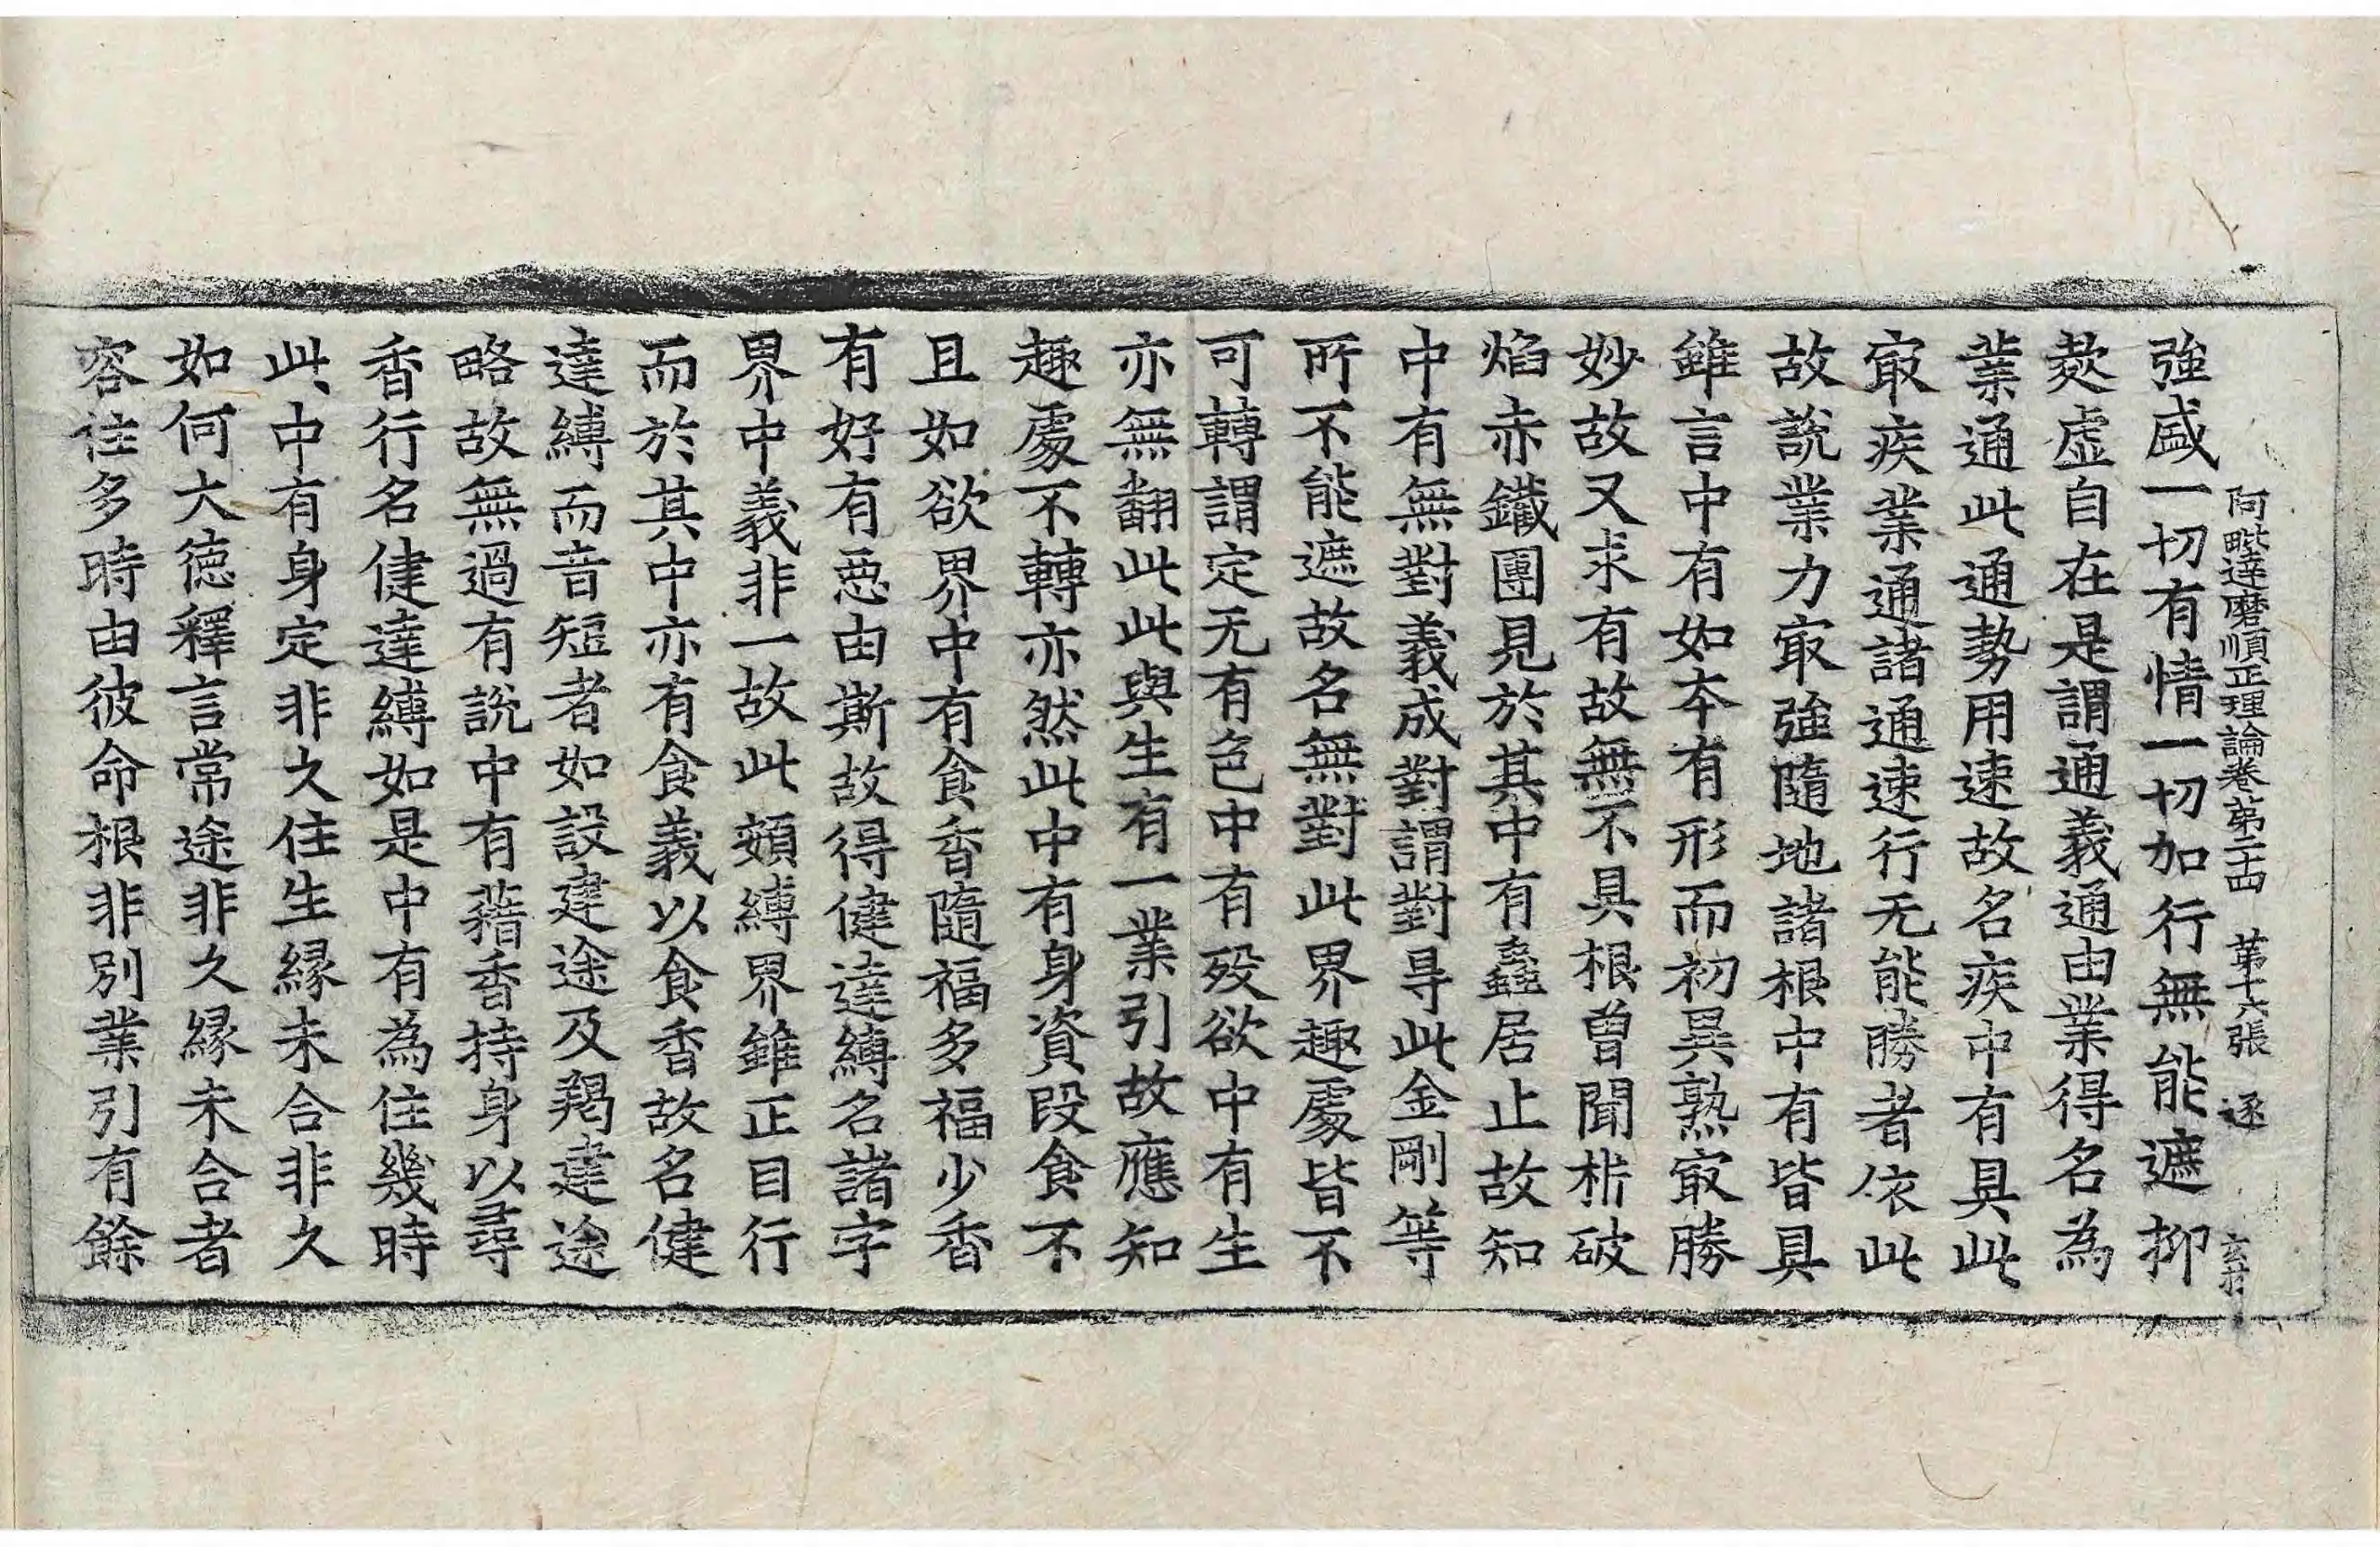 阿毗達磨順正理論卷第二十四　第十六張　逐
強盛一切有情一切加行無能遮抑
欻虛自在是謂通義通由業得名為
業通此通勢用速故名疾中有具此
㝡疾業通諸通速行无能勝者依此
故說業力㝡強隨地諸根中有皆具
雖言中有如本有形而初異熟㝡勝
妙故又求有故無不具根曾聞㭊破
焰赤鐵團見於其中有蟲居止故知
中有無對義成對謂對㝵此金剛等
所不能遮故名無對此界趣處皆不
可轉謂定无有色中有歿欲中有生
亦無翻此此與生有一業引故應知
趣處不轉亦然此中有身資段食不
且如欲界中有食香隨福多福少香
有好有惡由斯故得健達縛名諸字
界中義非一故此頞縛界雖正目行
而於其中亦有食義以食香故名健
達縛而音短者如設建途及羯建途
略故無過有說中有藉香持身以尋
香行名健達縛如是中有為住幾時
此中有身定非久住生緣未合非久
如何大德釋言常途非久緣未合者
容住多時由彼命根非別業引有餘